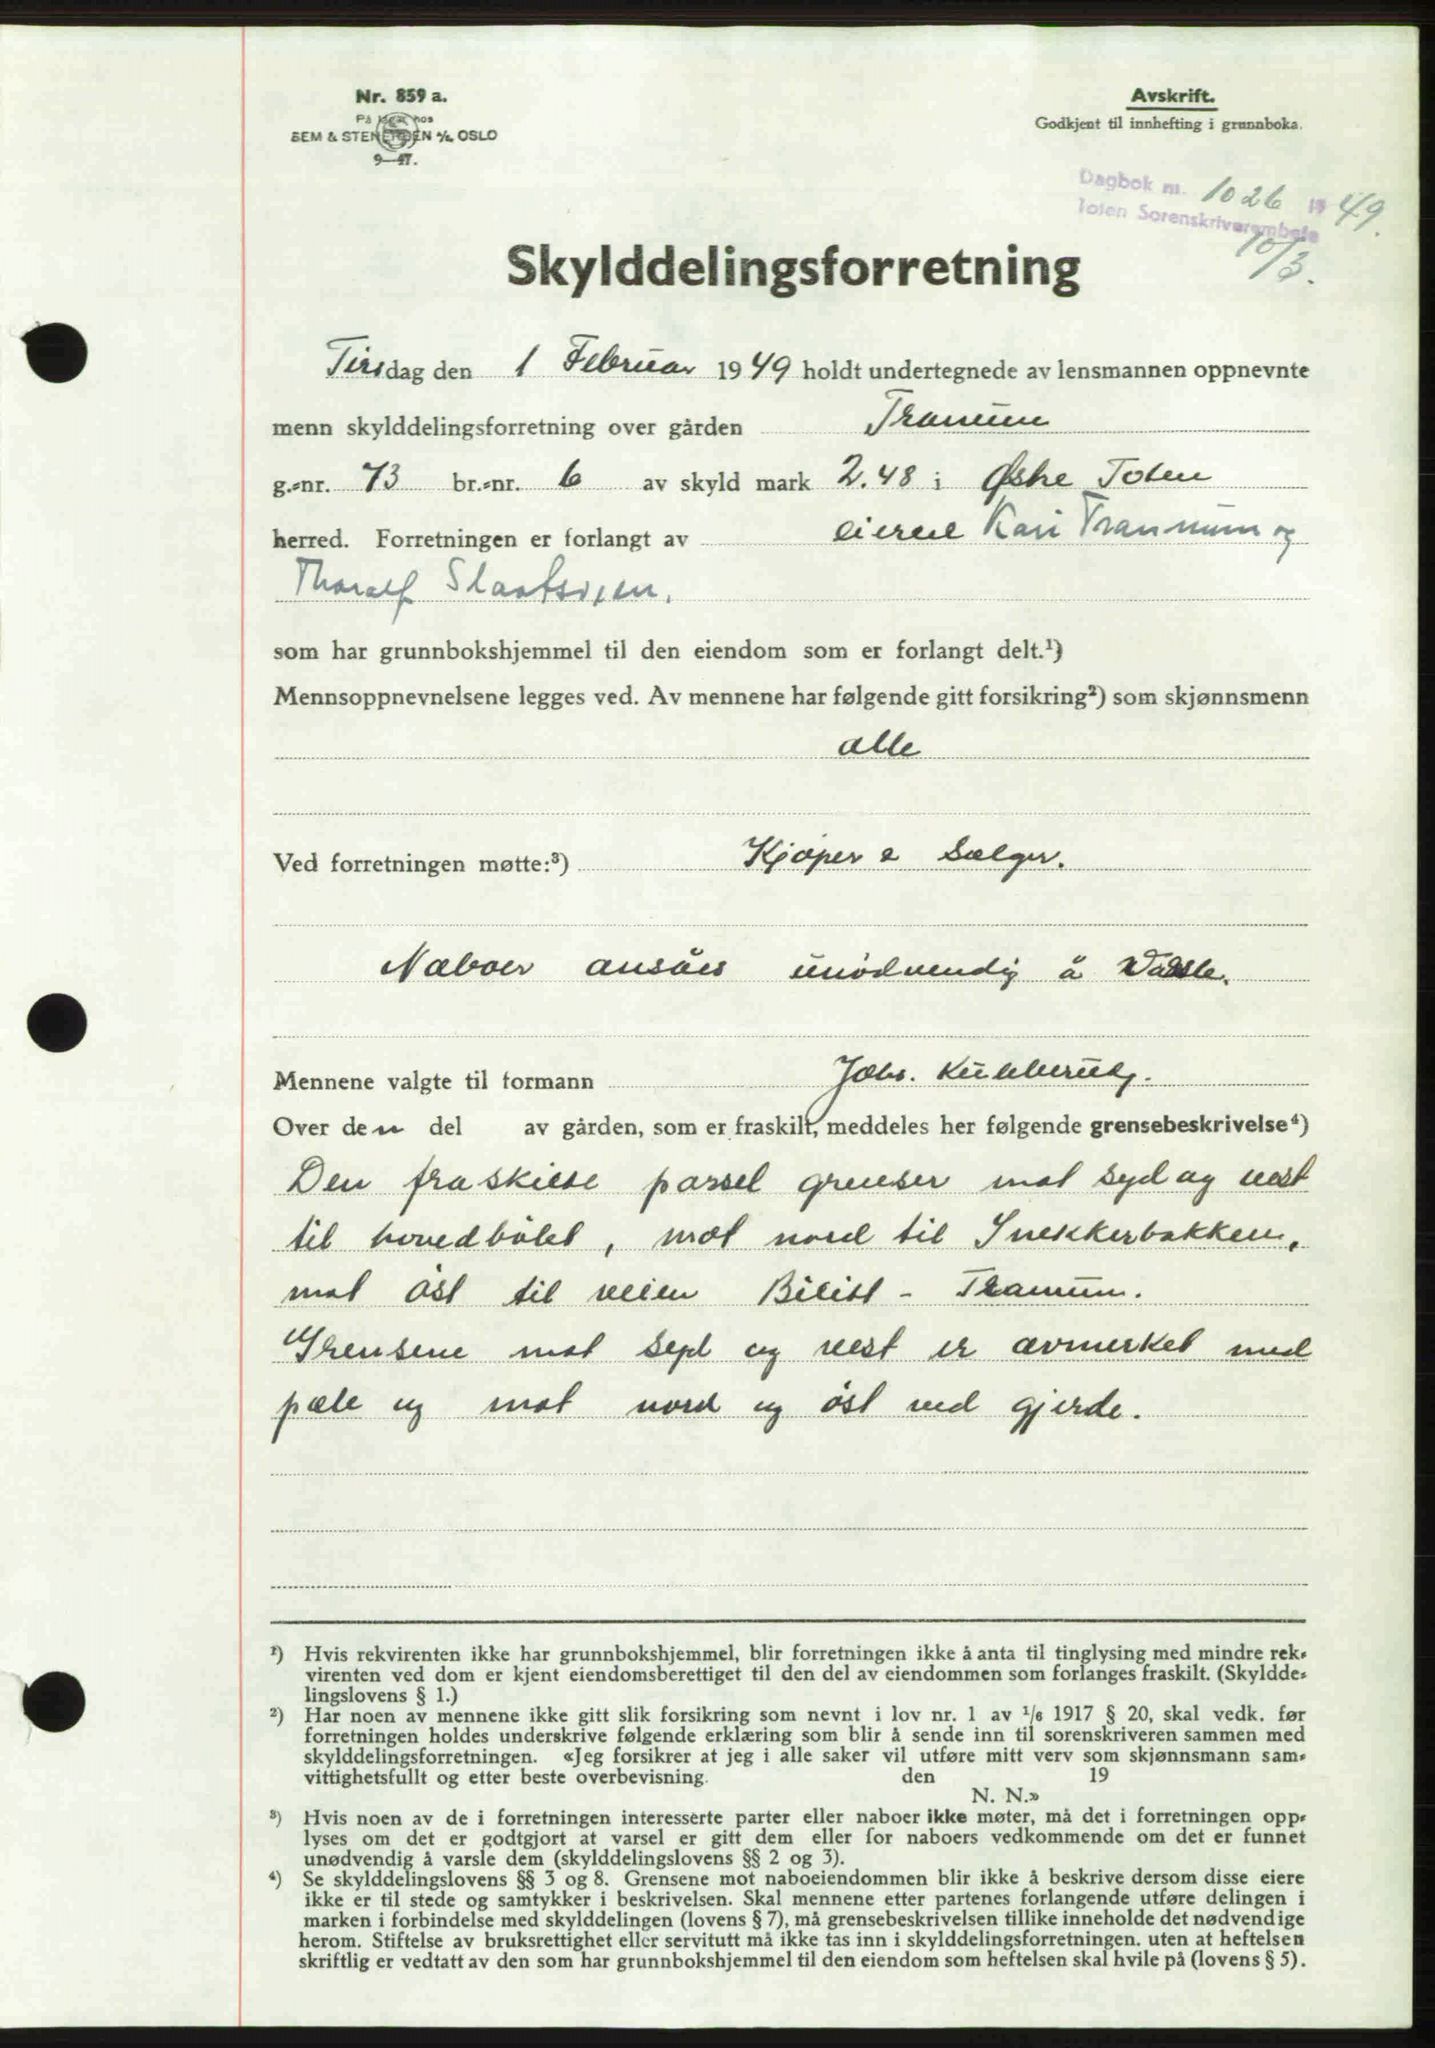 Nr. 859 a.
På lager hos
SEM & STENERSEN A/S, OSLO
9—47.
Avskrift.
Godkjent til innhefting i grunnboka.
Dagbok nr. 1026 1949.
Toten Sorenskriverembete
10/3.
Skylddelingsforretning
Tirsdag den 1 Februar 1949 holdt undertegnede av lensmannen oppnevnte
menn skylddelingsforretning over gården Tranum
g.-nr. 73 br.-nr. 6 av skyld mark 2.48 i Østre Toten
herred. Forretningen er forlangt av eierne Kari Trannum og
Thoralf
som har grunnbokshjemmel til den eiendom som er forlangt delt.¹)
Mennsoppnevnelsene legges ved. Av mennene har følgende gitt forsikring²) som skjønnsmenn
alle
Ved forretningen møtte:³) Kjøper & Sælger.
Næboer ansåes unödvendig å Varsle.
Mennene valgte til formann Johs. Kulberud.
Over den del av gården, som er fraskilt, meddeles her følgende grensebeskrivelse⁴)
Den fraskilte parsel grenser mot syd og vest
til hovedbölet, mot nord til Snekkerbakken,
mot öst til veien Bilitt - Tranum.
Grensene mot syd og vest er avmerket med
pæle og mot nord og öst ved gjerde.
¹) Hvis rekvirenten ikke har grunnbokshjemmel, blir forretningen ikke å anta til tinglysing med mindre rek-
virenten ved dom er kjent eiendomsberettiget til den del av eiendommen som forlanges fraskilt. (Skyldde-
lingslovens § 1.)
²) Har noen av mennene ikke gitt slik forsikring som nevnt i lov nr. 1 av 1/6 1917 § 20, skal vedk. før
forretningen holdes underskrive følgende erklæring som blir å sende inn til sorenskriveren sammen med
skylddelingsforretningen. «Jeg forsikrer at jeg i alle saker vil utføre mitt verv som skjønnsmann sam-
vittighetsfullt og etter beste overbevisning. den 19
N. N.»
³) Hvis noen av de i forretningen interesserte parter eller naboer ikke møter, må det i forretningen opp-
lyses om det er godtgjort at varsel er gitt dem eller for naboers vedkommende om det er funnet
unødvendig å varsle dem (skylddelingslovens §§ 2 og 3).
⁴) Se skylddelingslovens §§ 3 og 8. Grensene mot naboeiendommen blir ikke å beskrive dersom disse eiere
ikke er til stede og samtykker i beskrivelsen. Skal mennene etter partenes forlangende utføre delingen i
marken i forbindelse med skylddelingen (lovens § 7), må grensebeskrivelsen tillike inneholde det nødvendige
herom. Stiftelse av bruksrettighet eller servitutt må ikke tas inn i skylddelingsforretningen. uten at heftelsen
skriftlig er vedtatt av den som har grunnbokshjemmel til den eiendom som heftelsen skal hvile på (lovens § 5).